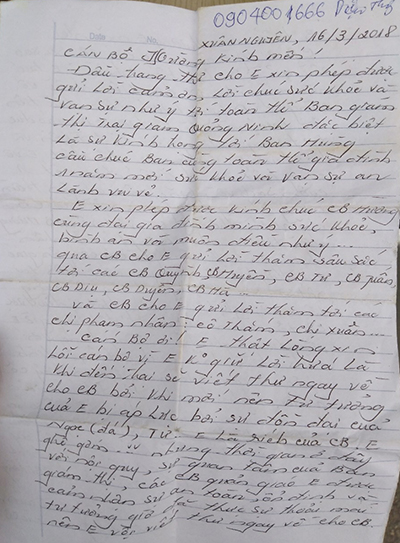 0904001666 Diệu Thuý
Date No.
XUÂN NGUYÊN, 16/3/2018
CÁN BỘ Hường Kính mến!
Đầu trang thư cho E xin phép được
gửi lời cảm ơn lời chúc sức khỏe và
vạn sự như ý tới toàn thể Ban giám
thị trại giam Quảng Ninh đặc biệt
Là sự kính trọng tới Ban Hường
cầu chúc Ban cùng toàn thể gia đình
năm mới sức khỏe và vạn sự an
Lành vui vẻ.
E xin phép được kính chúc CB Hương
cùng đại gia đình mình sức khỏe,
bình an và muôn điều như ý...
qua CB cho E gửi lời thăm sâu sắc
tới các CB Quỳnh, CB Huyền, CB Tư, CB Tuấn,
CB Dịu, CB Duyên, CB Hà...
và CB cho E gửi lời thăm tới các
chị phạm nhân: cô Thắm, chị Xuân...
Cán Bộ ơi! E thật lòng xin
lỗi cán bộ vì E K giữ lời hứa là
khi đến trại sẽ viết thư ngay về
cho CB bởi khi mới nên tư tưởng
của E bị áp lực bởi sự đồn đại của
Ngọc (đá), Tư... E là của CB. E
những thời gian ở đây
với nội quy, sự quan tâm của Ban
giám thị, các CB quản giáo E được
cảm nhận sự an toàn, ổn định và
tư tưởng giờ đã thực sự thoải mái
nên E vội viết thư ngay về cho CB.